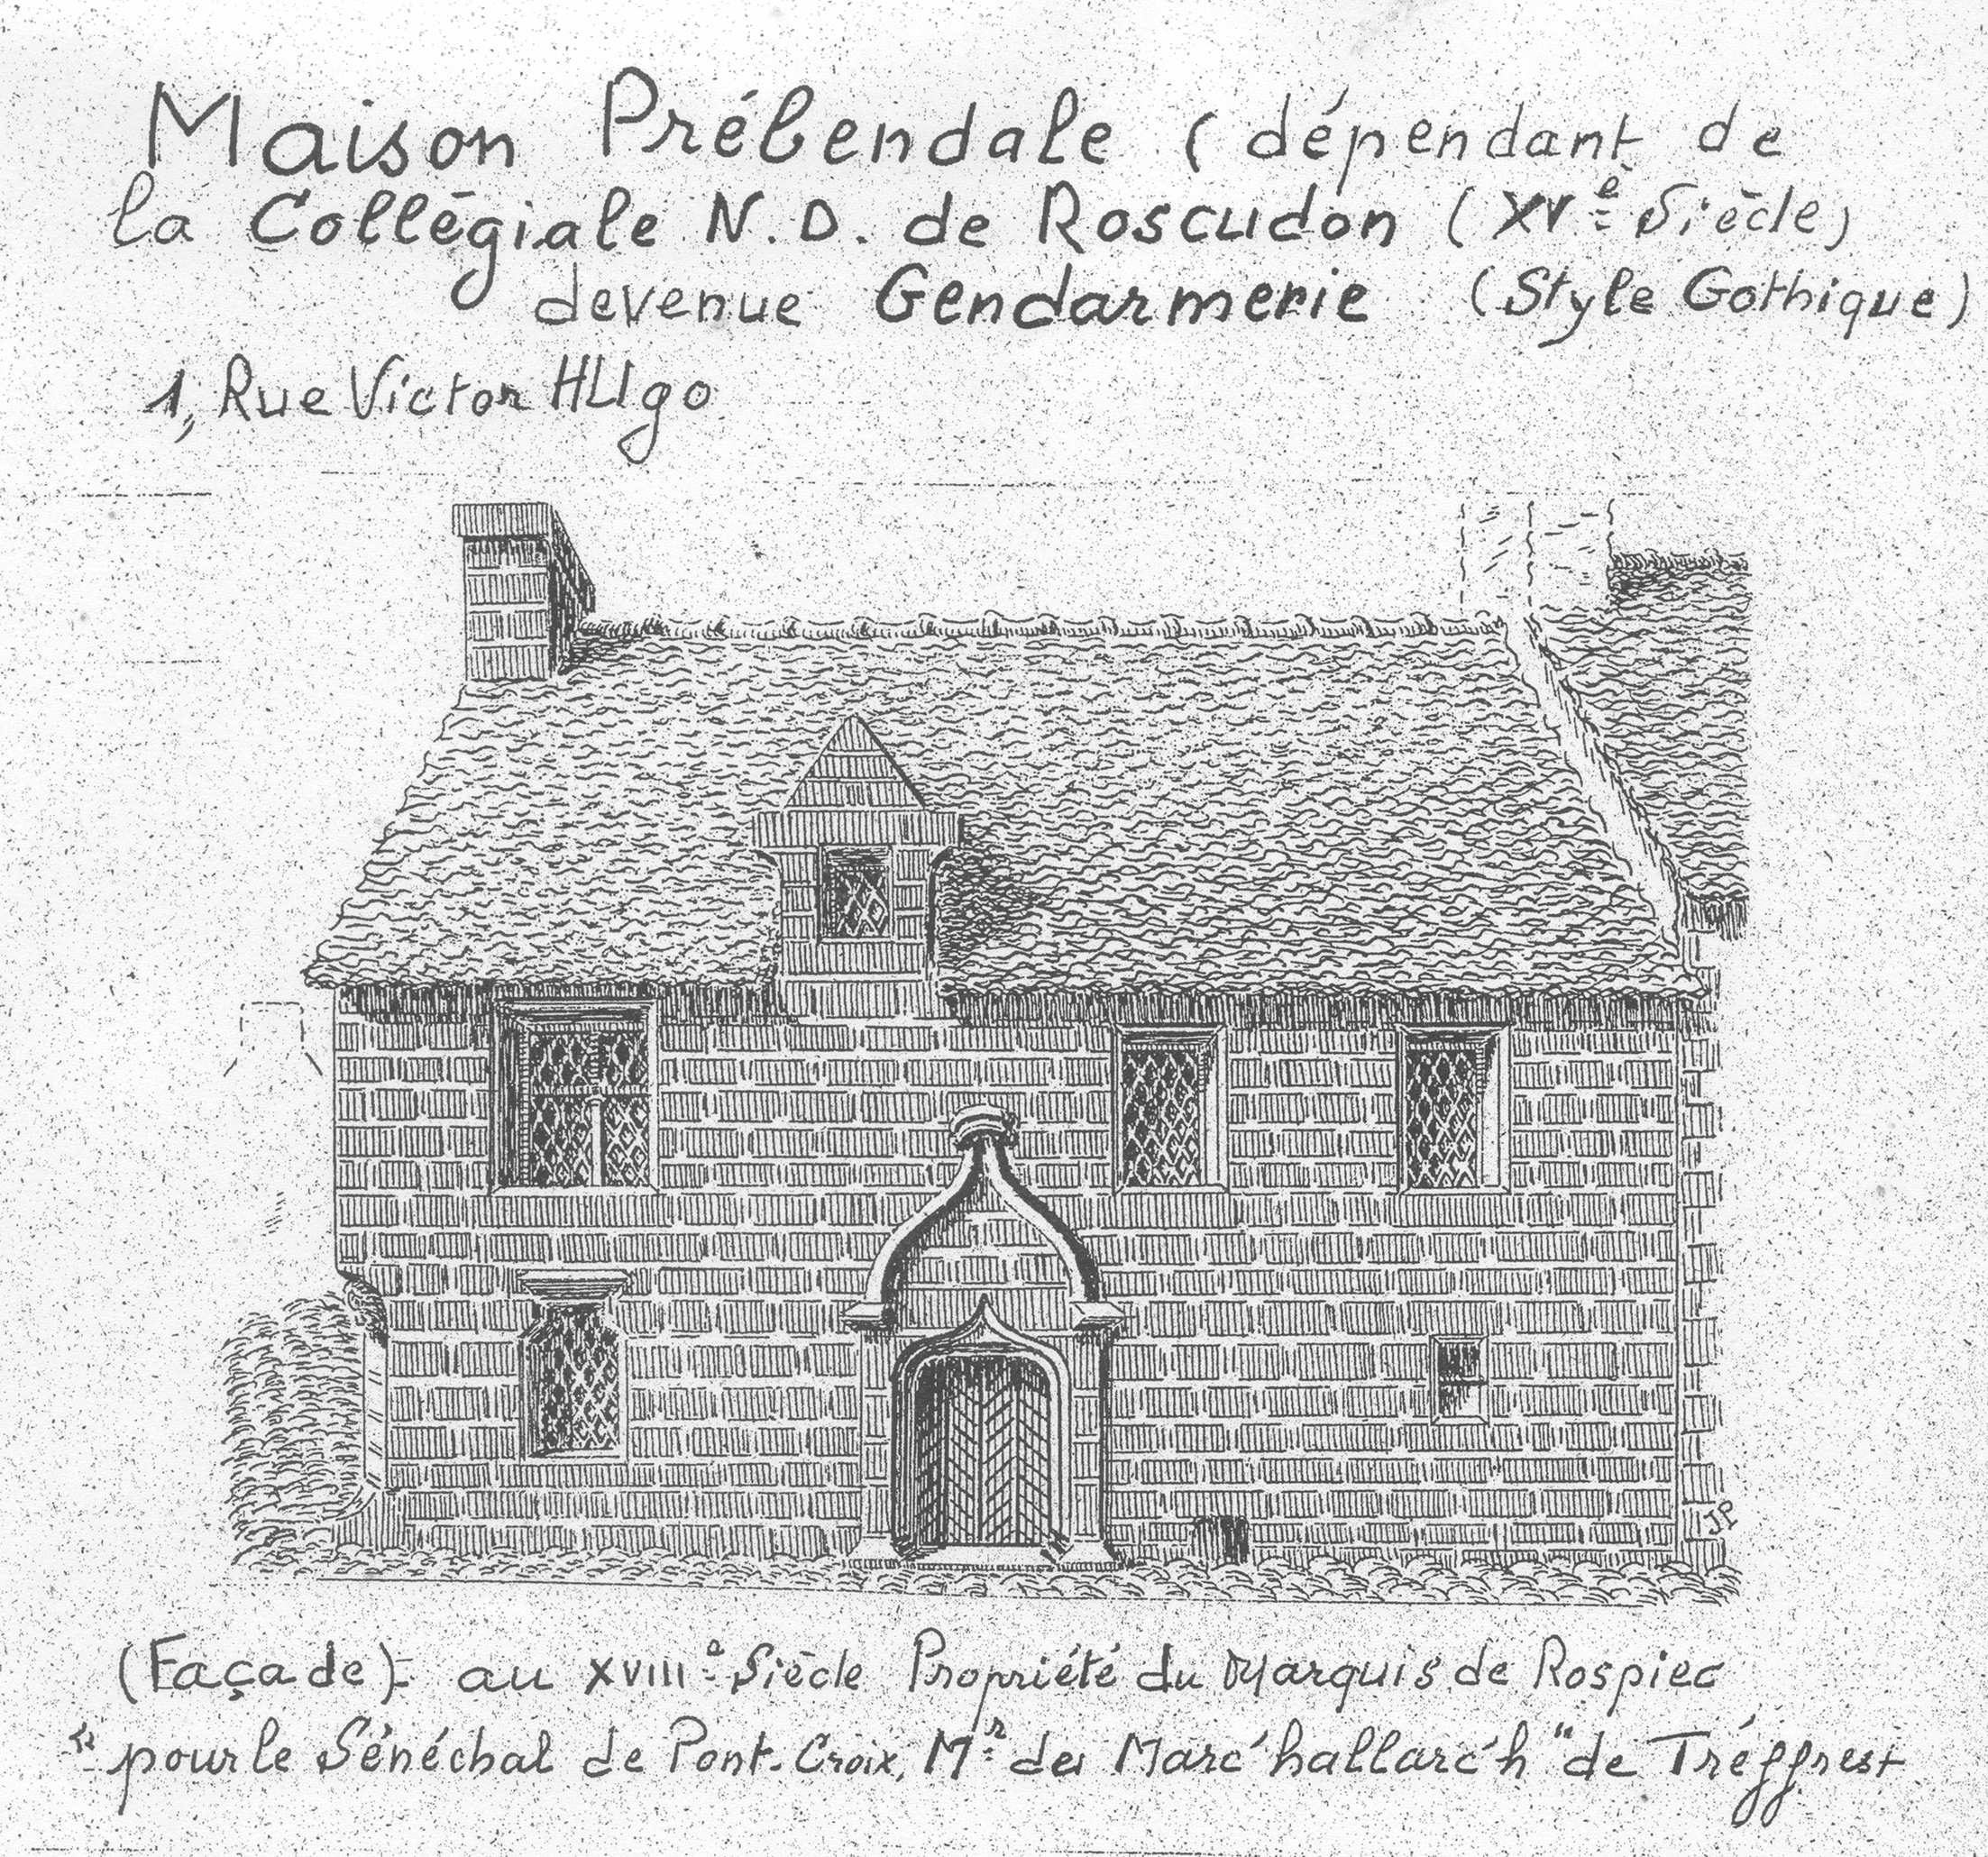 Maison Prébendale ( dépendant de
la Collégiale N.D. de Roscudon ( XVe Siècle)
devenue Gendarmerie (Style Gothique)
1, Rue Victor HUgo
JP
(Façade)- au XVIIIe Siècle Propriété du Marquis de Rospiec
" pour le Sénéchal de Pont-Croix, Mr de Marc'hallarc'h " de Tréffrest